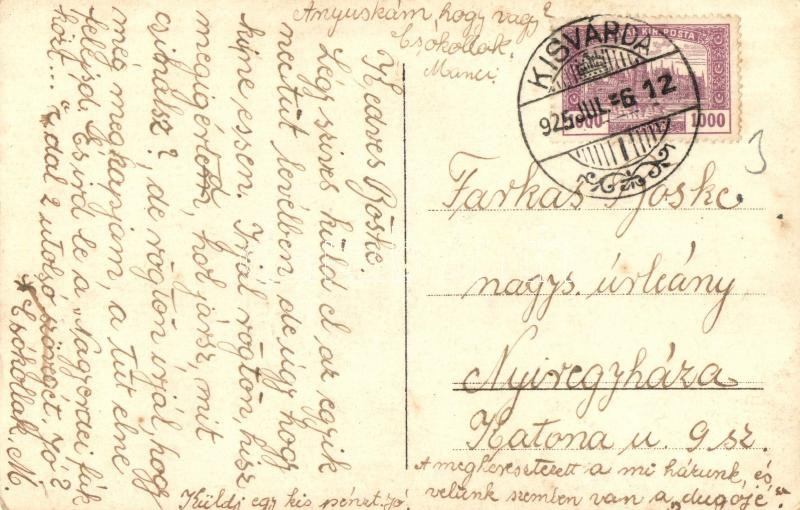 Anyuskám, hogy vagy?
Csókollak.
Manci.
Kedves Böske.
Légy szives küld el az egyik
nec tüt levélben, de úgy hogy
kipne essen. Irjál rögtön, hisz
megigérted, hol jársz, mit
csinálsz?, de rögtön irjál, hogy
még megkapjam, a tüt elne
felejsd. Es ird le a „Nagyerdei fák
közt..." dal 2 utolsó szövegét. Jó?
Csókollak. M.
Küldj egy kis pénzt. jó
MAGY. KIR. POSTA
1000 1000
KISVÁRDA
925 JUL -6 12
3
Farkas Böske
nagys. úrleány
Nyiregyháza
Katona u. 9 sz.
A megkeresztezett a mi házunk, és
velünk szemben van a „dugóje"